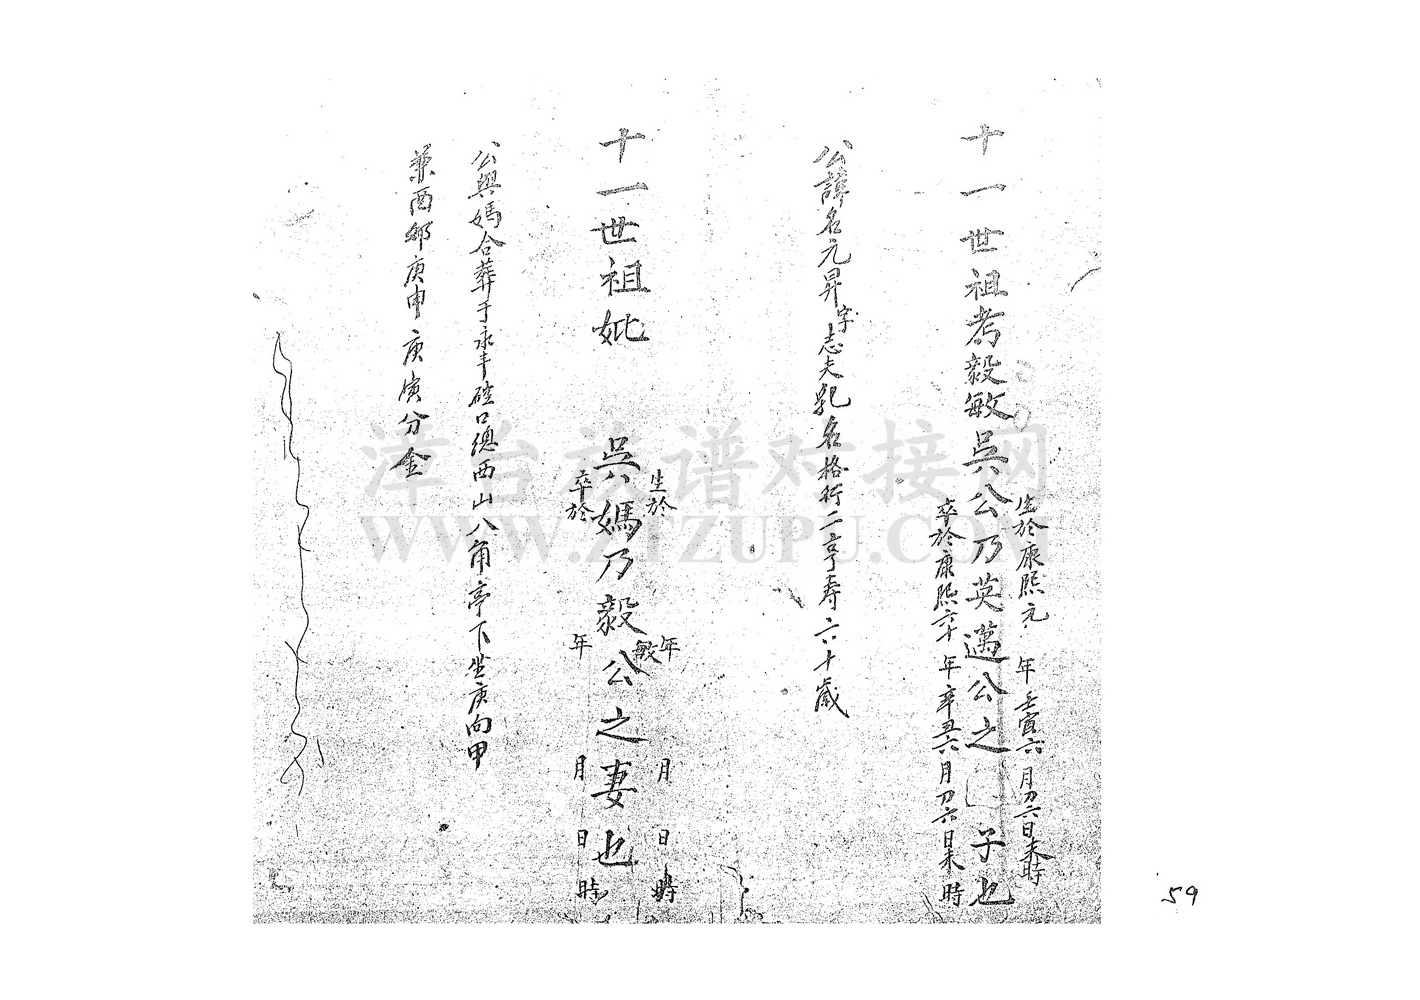 十一世祖考毅敏吳公乃英邁公之 子也
生於康熙元年壬寅六月初六日未時
卒於康熙六十年辛丑六月初六日未時
公諱名元昇字志夫乳名格行二亨寿六十歲
十一世祖妣 吳媽乃毅敏公之妻也
生於 年 月 日 時
卒於 年 月 日 時
公與媽合葬于永丰 口 西山八角亭下坐庚向甲
兼酉卯庚申庚寅分金
漳台族谱对接网
WWW.ZTZUPU.COM
59